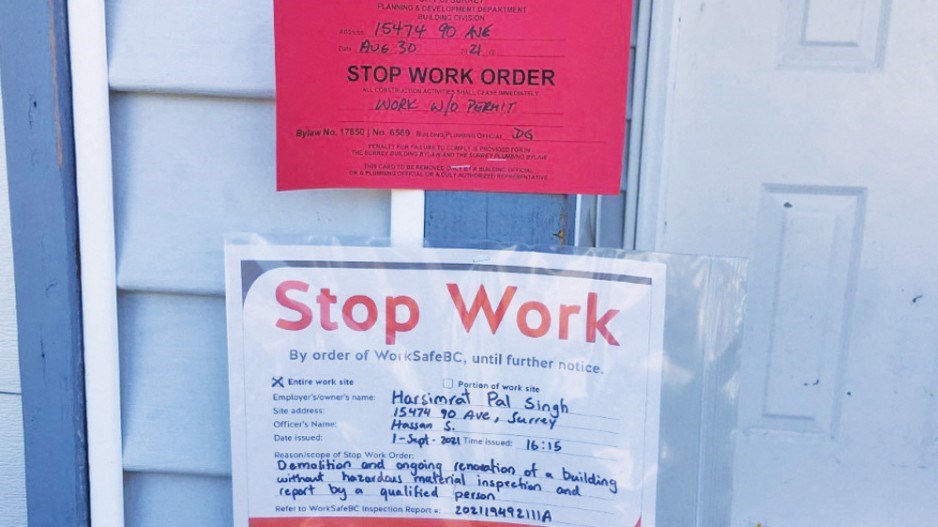 CITY OF SURREY
PLANNING & DEVELOPMENT DEPARTMENT
BUILDING DIVISION
Address 15474 90 AVE
Date AUG 30 20 21
STOP WORK ORDER
ALL CONSTRUCTION ACTIVITIES SHALL CEASE IMMEDIATELY
WORK W/O PERMIT
Bylaw No. 17850 | No. 6569 BUILDING/PLUMBING OFFICIAL DG
PENALTY FOR FAILURE TO COMPLY IS PROVIDED FOR IN
THE SURREY BUILDING BYLAW AND THE SURREY PLUMBING BYLAW
THIS CARD TO BE REMOVED ONLY BY A BUILDING OFFICIAL
OR A PLUMBING OFFICIAL OR A DULY AUTHORIZED REPRESENTATIVE
Stop Work
By order of WorkSafeBC, until further notice.
X Entire work site Portion of work site
Employer's/owner's name: Harsimrat Pal Singh
Site address: 15474 90 Ave, Surrey
Officer's Name: Hassan S.
Date issued: 1-Sept-2021 Time issued: 16:15
Reason/scope of Stop Work Order:
Demolition and ongoing renovation of a building
without hazardous material inspection and
report by a qualified person
Refer to WorkSafeBC Inspection Report #: 202119492111A